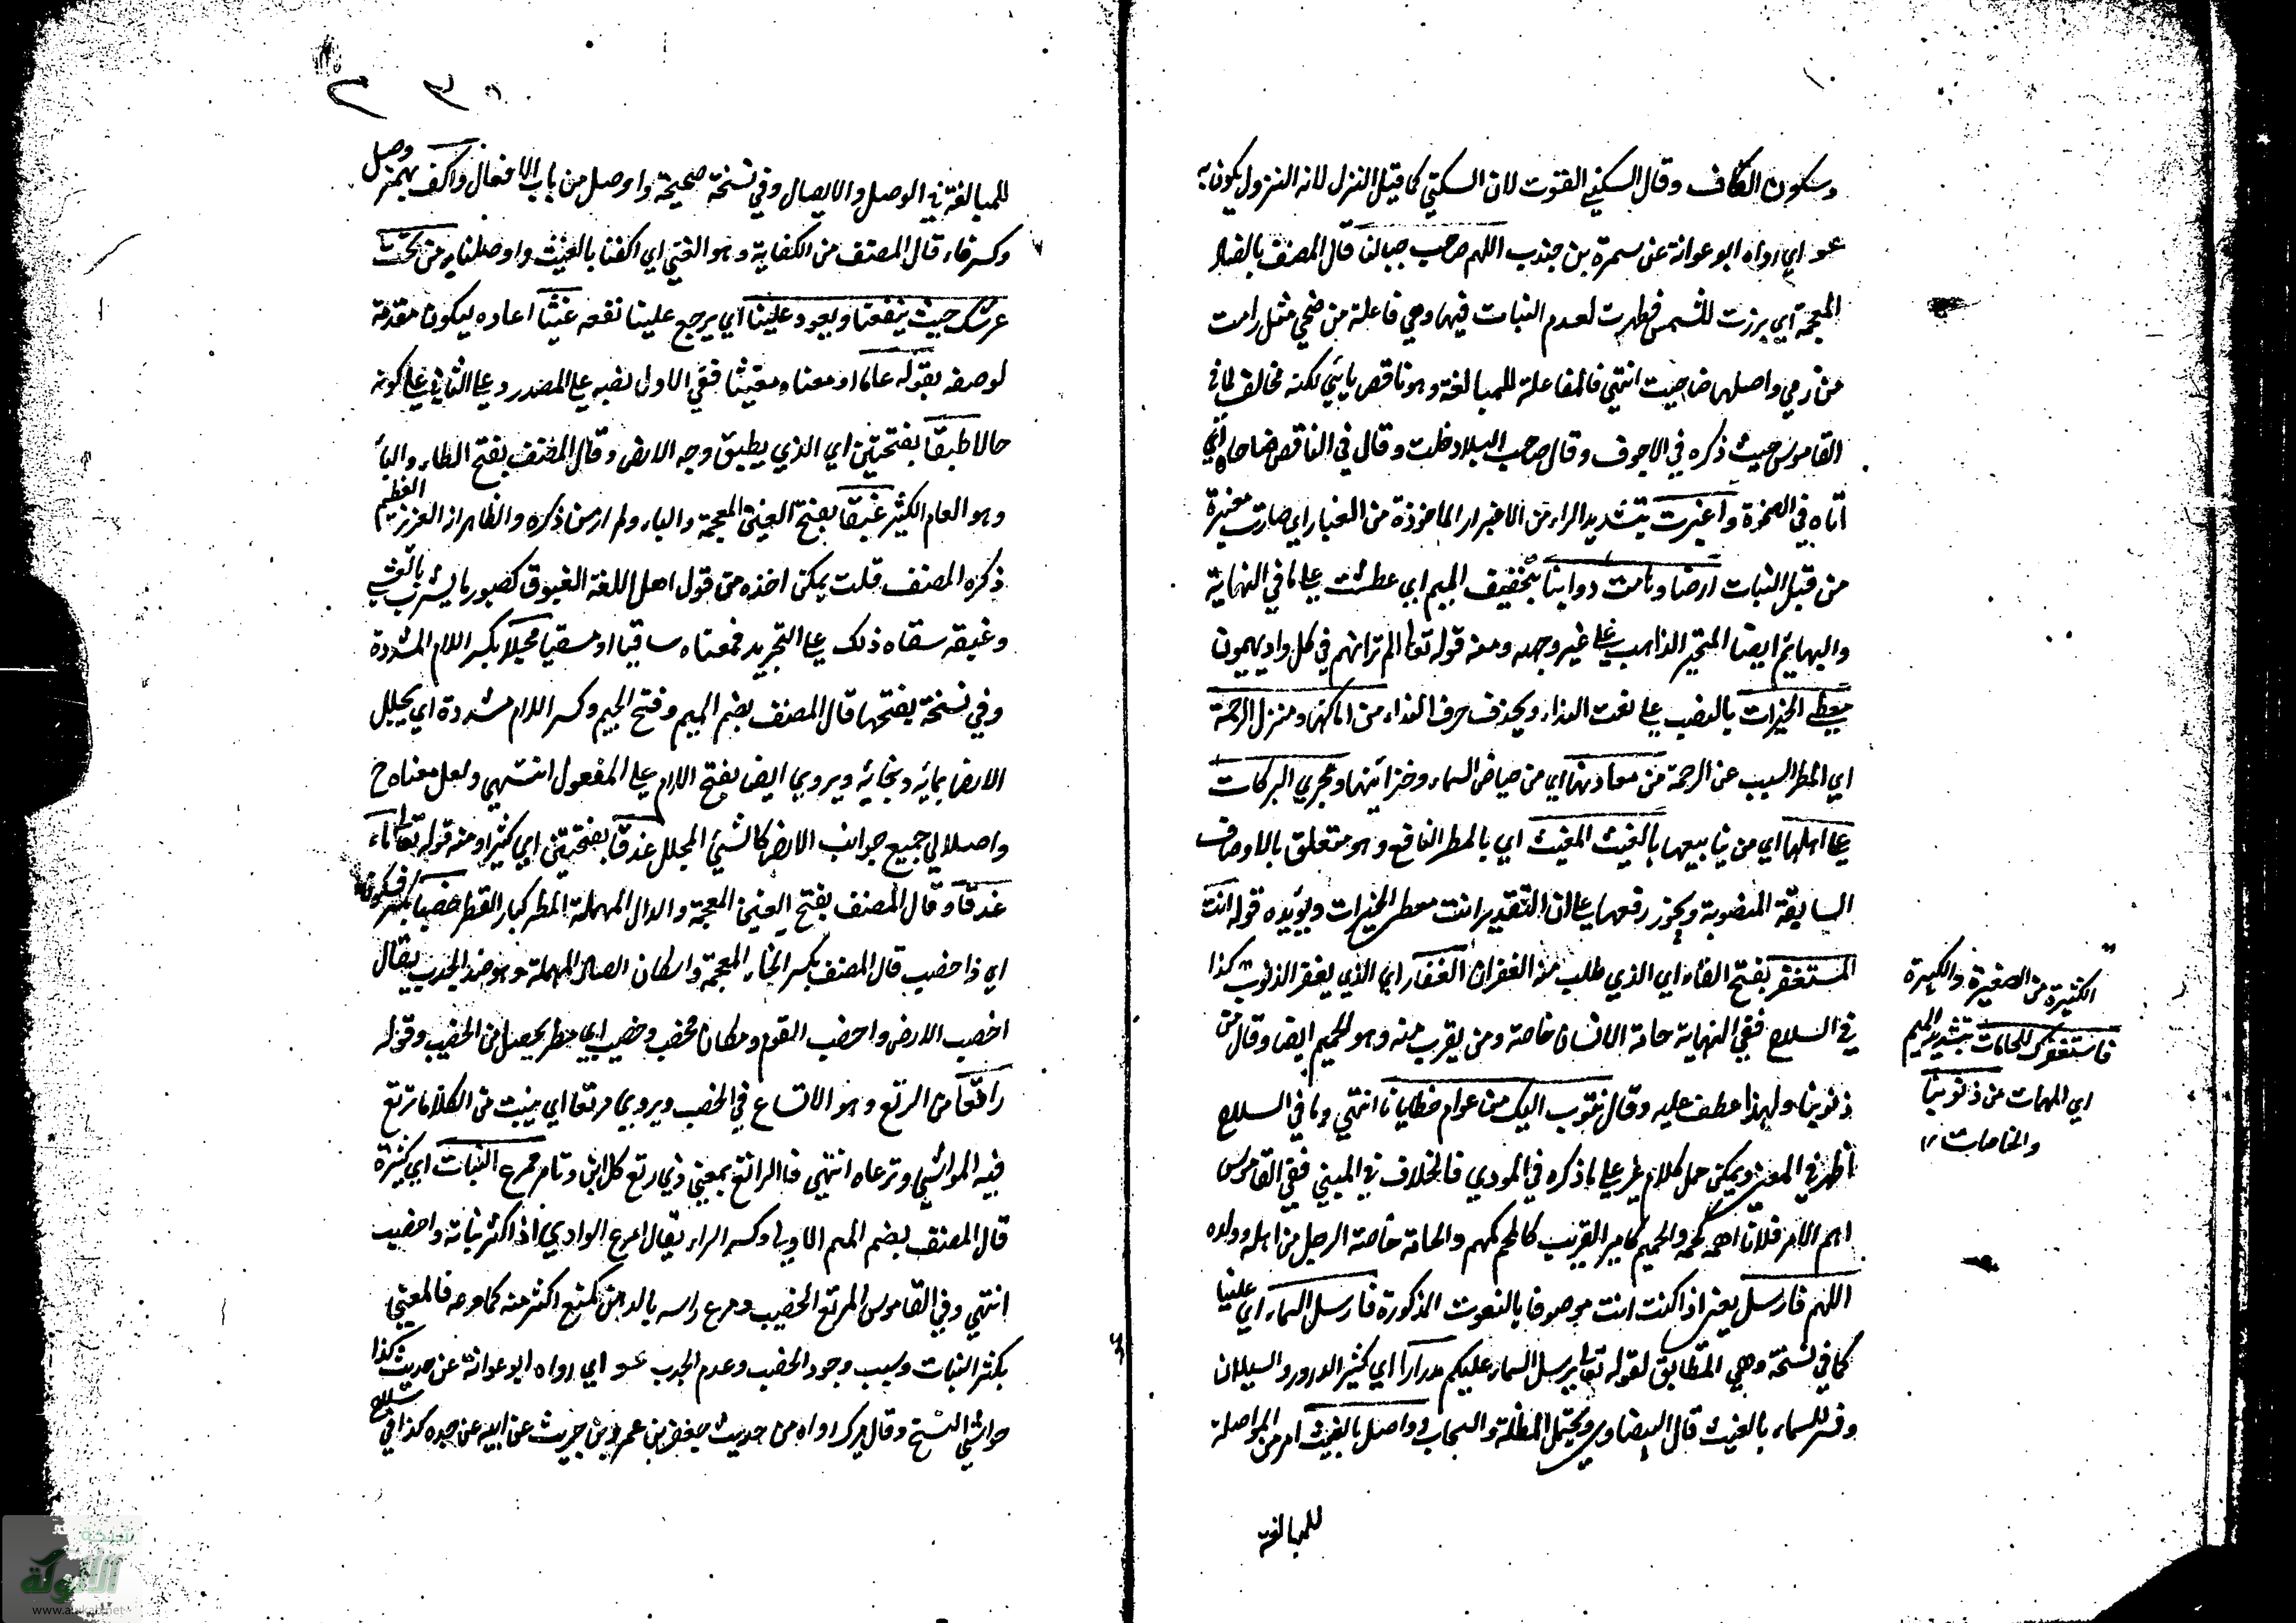 وسكون الكاف وقال السكني القوت لان السكني كما قيل النزل لانه النزول يكون به
عو اي رواه ابو عوانة عن سمرة بن جندب اللهم ضاحت جبالنا قال المصنف بالضاد
المعجمة اي برزت للشمس فظهرت لعدم النبات فيها وهي فاعلة من ضحى مثل رامت
من رمي واصلها ضاحيت انتهى فالمفاعلة للمبالغة وهو ناقص يائي لكنه مخالف لما في
القاموس حيث ذكره في الاجوف وقال ضاحت البلاد خلت وقال في الناقص ضاحاه اي
اتاه في الضحوة واغبرت بتشديد الراء من الاغبرار الماخوذة من الغبار اي صارت مغبرة
من قبل النبات ارضنا وهامت دوابنا بتخفيف الميم اي عطشت على ما في النهاية
والبهائم ايضا المتحير الذاهب على غير وجهه ومنه قوله تعالى الم تر انهم في كل واد يهيمون
معطي الخيرات بالنصب على نعت النداء وبحذف حرف النداء من اماكنها ومنزل الرحمة
اي المطر المسبب عن الرحمة من معادنها اي من حياض السماء وخزائنها ومجري البركات
على اهلها اي من ينابيعها بالغيث المغيث اي بالمطر النافع وهو متعلق بالاوصاف
السابقة المنصوبة ويجوز رفعها على ان التقدير انت معطي الخيرات ويؤيده قوله انت
المستغفر بفتح الفاء اي الذي طلب منه الغفران الغفار اي الذي يغفر الذنوب كذا
في السلاح ففي النهاية حامة الانسان خاصته ومن يقرب منه وهو الحميم ايضا وقال من
ذنوبنا ولهذا عطف عليه وقال نتوب اليك من عوام خطايانا انتهى وما في السلاح
اظهر في المعنى ويمكن حمل كلام غيره على ما ذكره في المودى فالخلاف في المبنى ففي القاموس
اهم الامر فلانا اهمه كحمه والحميم كامير القريب كالحم كمهم والحامة خاصة الرجل من اهله وولده
اللهم فارسل يعني اذا كنت انت موصوفا بالنعوت المذكورة فارسل السماء اي علينا
كما في نسخة وهي المطابق لقوله تعالى يرسل السماء عليكم مدرارا اي كثير الدرور والسيلان
وفسر السماء بالغيث قال البيضاوي ويحتمل المظلة والسحاب وواصل بالغيث امر من المواصلة
للمبالغة
الكثيرة من الصغيرة والكبيرة
فاستغفرك للحامات بتشديد الميم
اي المهمات من ذنوبنا
والخاصات
للمبالغة في الوصل والايصال وفي نسخة صحيحة واوصل من باب الافعال واكف بهمز وصل
وكسر فاء قال المصنف من الكفاية وهو الغنى اي اكفنا بالغيث واوصلنا به من تحت
عرشك حيث ينفعنا ويعود علينا اي يرجع علينا نفعه غيثا اعاده ليكون مقدمة
لوصفه بقوله عاما او معناه مغيثا ففي الاول نصبه على المصدر وعلى الثاني على كونه
حالا طبقا بفتحتين اي الذي يطبق وجه الارض وقال المصنف بفتح الطاء والباء
وهو العام الكثير غبقا بفتح الغين المعجمة والباء ولم ار من ذكره والظاهر انه العزيز العظيم
ذكره المصنف قلت يمكن اخذه من قول اهل اللغة الغبوق كصبور ما يشرب بالعشي
وغبقه سقاه ذلك على التجريد فمعناه ساقيا او مسقيا مجللا بكسر اللام المشددة
وفي نسخة بفتحها قال المصنف بضم الميم وفتح الجيم وكسر اللام مشددة اي يجلل
الارض بمائه ونباته ويروى ايضا بفتح اللام على المفعول انتهى ولعل معناه ح
واصلا الى جميع جوانب الارض كالشيء المجلل غدقا بفتحتين اي كثيرا ومنه قوله تعالى ماء
غدقا وقال المصنف بفتح الغين المعجمة والدال المهملة المطر كبار القطر خصبا بكسر فسكون
اي ذا خصب قال المصنف بكسر الخاء المعجمة واسكان الصاد المهملة وهو ضد الجدب يقال
اخصب الارض واخصب القوم ومكان مخصب وخصيب اي مطر يحصل من الخصب وقوله
راتعا من الرتع وهو الاتساع في الخصب ويروى مرتعا اي ينبت من الكلا ما ترتع
فيه المواشي وترعاه انتهى فالراتع بمعنى ذي رتع كلابن وتامر ممرع النبات اي كثيرة
قال المصنف بضم الميم الاولى وكسر الراء يقال امرع الوادي اذا كثر نباته واخصب
انتهى وفي القاموس المرتع الخصيب ومرع راسه بالدهن كمنع اكثر منه كامرعه فالمعنى
بكثر النبات وسبب وجود الخصب وعدم الجدب عو اي رواه ابو عوانة عن حديث كذا
حواشي النسخ وقال ميرك رواه من حديث جعفر بن عمرو بن حريث عن ابيه عن جده كذا في سلاح